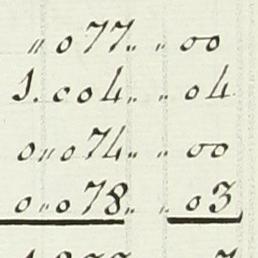 „ 077„ „ 00
1.004„ „ 04
0„074„ „ 00
0„078„ „ 03